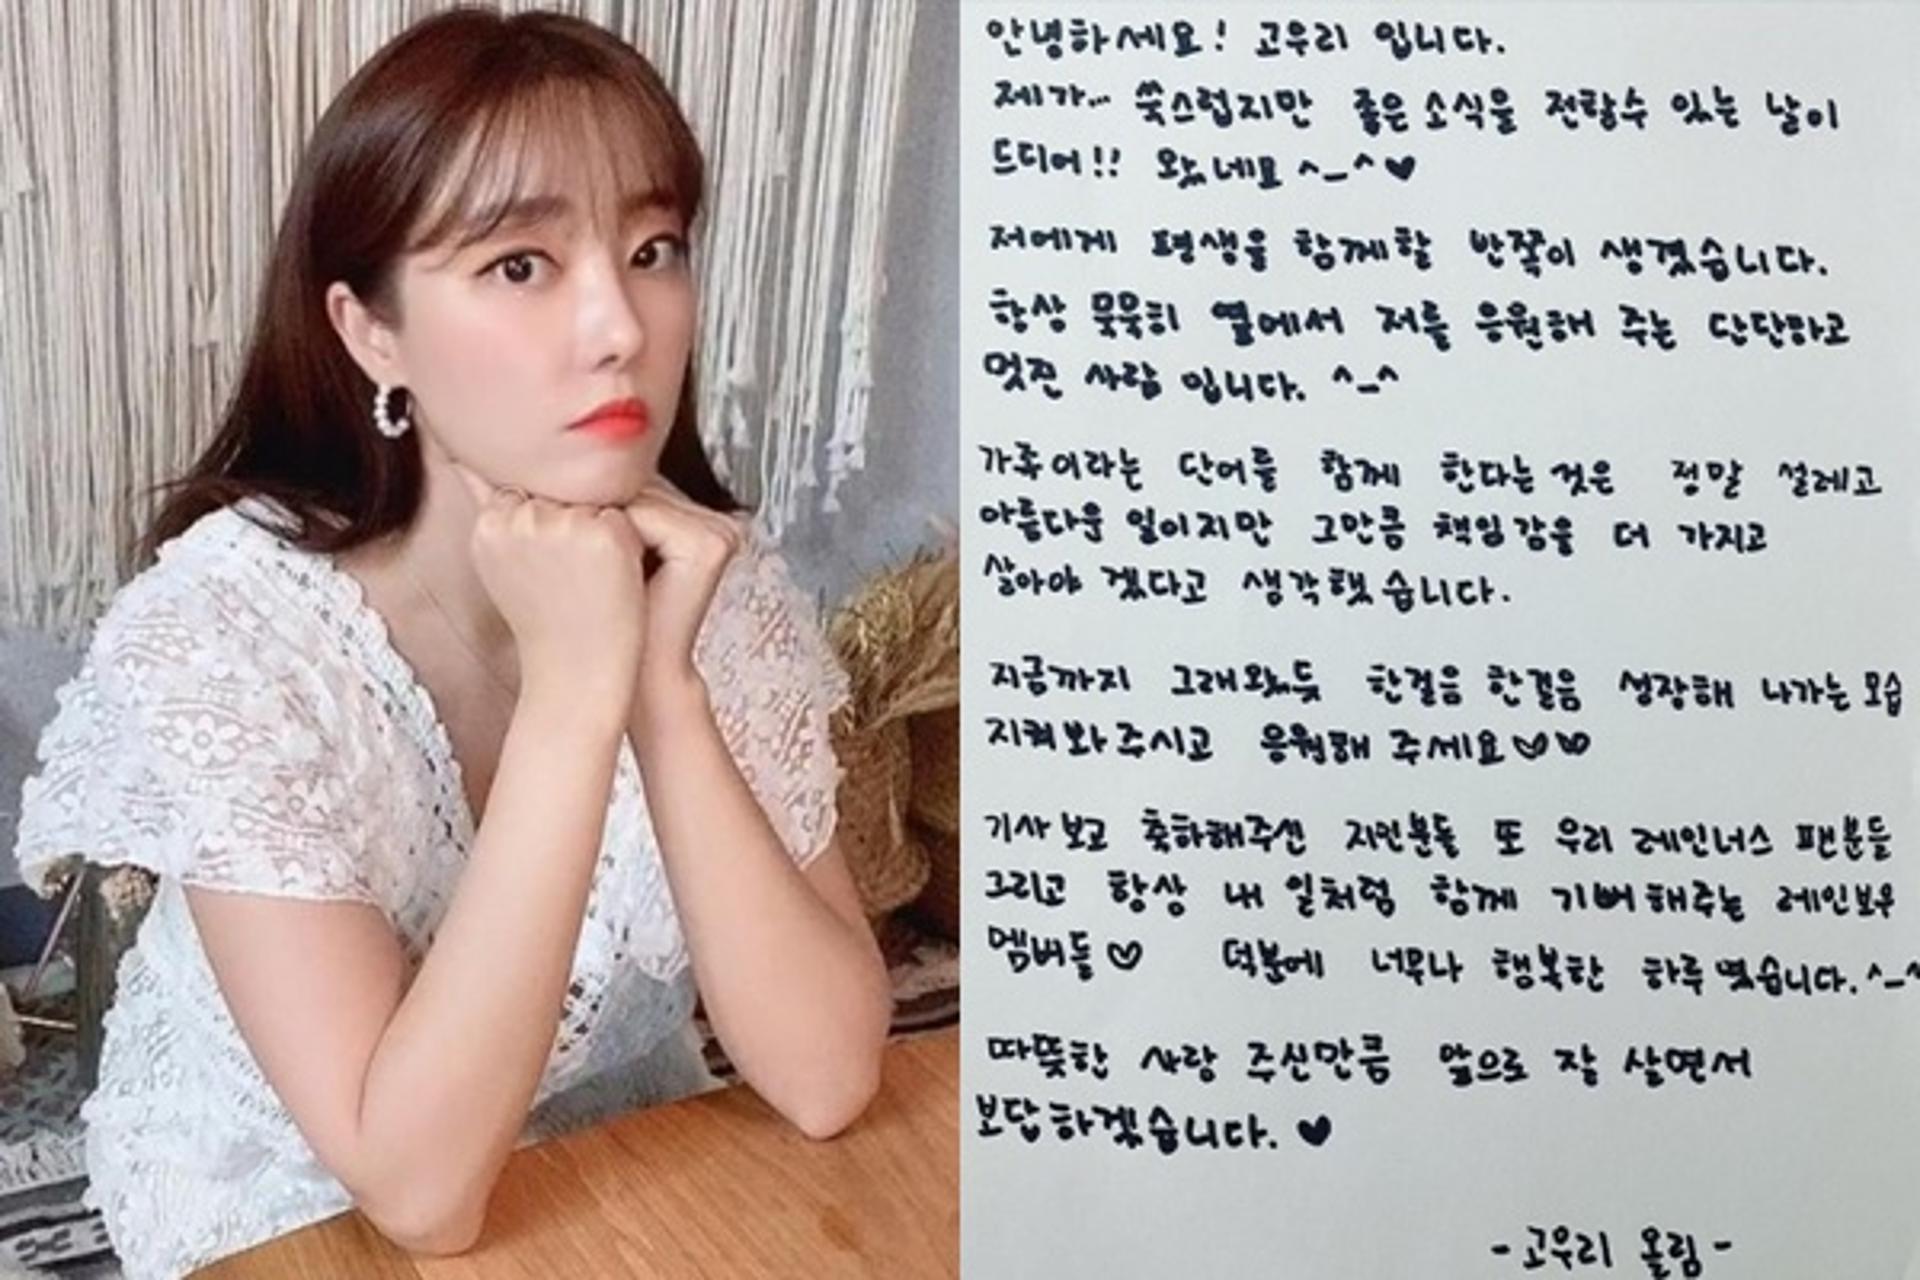 안녕하세요! 고우리 입니다.
제가... 쑥스럽지만 좋은 소식을 전할수 있는 날이
드디어!! 왔네요 ^_^♥
저에게 평생을 함께할 반쪽이 생겼습니다.
항상 묵묵히 옆에서 저를 응원해 주는 단단하고
멋진 사람 입니다. ^_^
가족이라는 단어를 함께 한다는 것은 정말 설레고
아름다운 일이지만 그만큼 책임감을 더 가지고
살아야 겠다고 생각했습니다.
지금까지 그래왔듯 한걸음 한걸음 성장해 나가는 모습
지켜봐 주시고 응원해 주세요♡♡
기사 보고 축하해주신 지인분들 또 우리 레인너스 팬분들
그리고 항상 내 일처럼 함께 기뻐해주는 레인보우
멤버들♡ 덕분에 너무나 행복한 하루 였습니다. ^_^
따뜻한 사랑 주신만큼 앞으로 잘 살면서
보답하겠습니다. ♥
- 고우리 올림 -